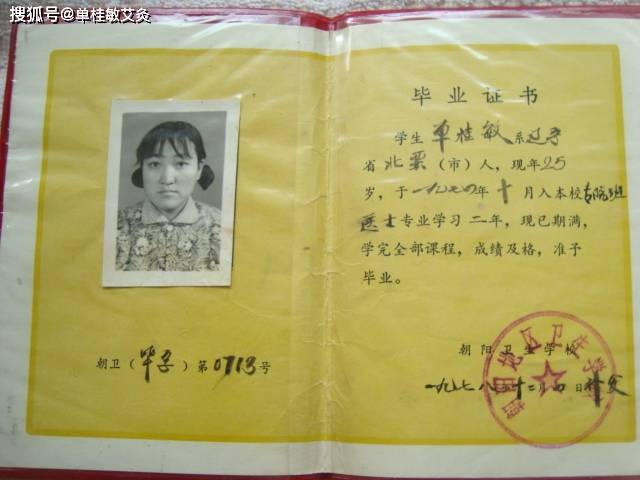 搜狐号@单桂敏艾灸
毕业证书
学生单桂敏系辽宁
省北票(市)人,现年25
岁,于一九七六年十月入本校
医士专业学习二年,现已期满,
学完全部课程,成绩及格,准予
毕业。
朝卫(毕字)第0713号
朝阳卫生学校
一九七八年十二月 日补发
朝阳地区卫生学校